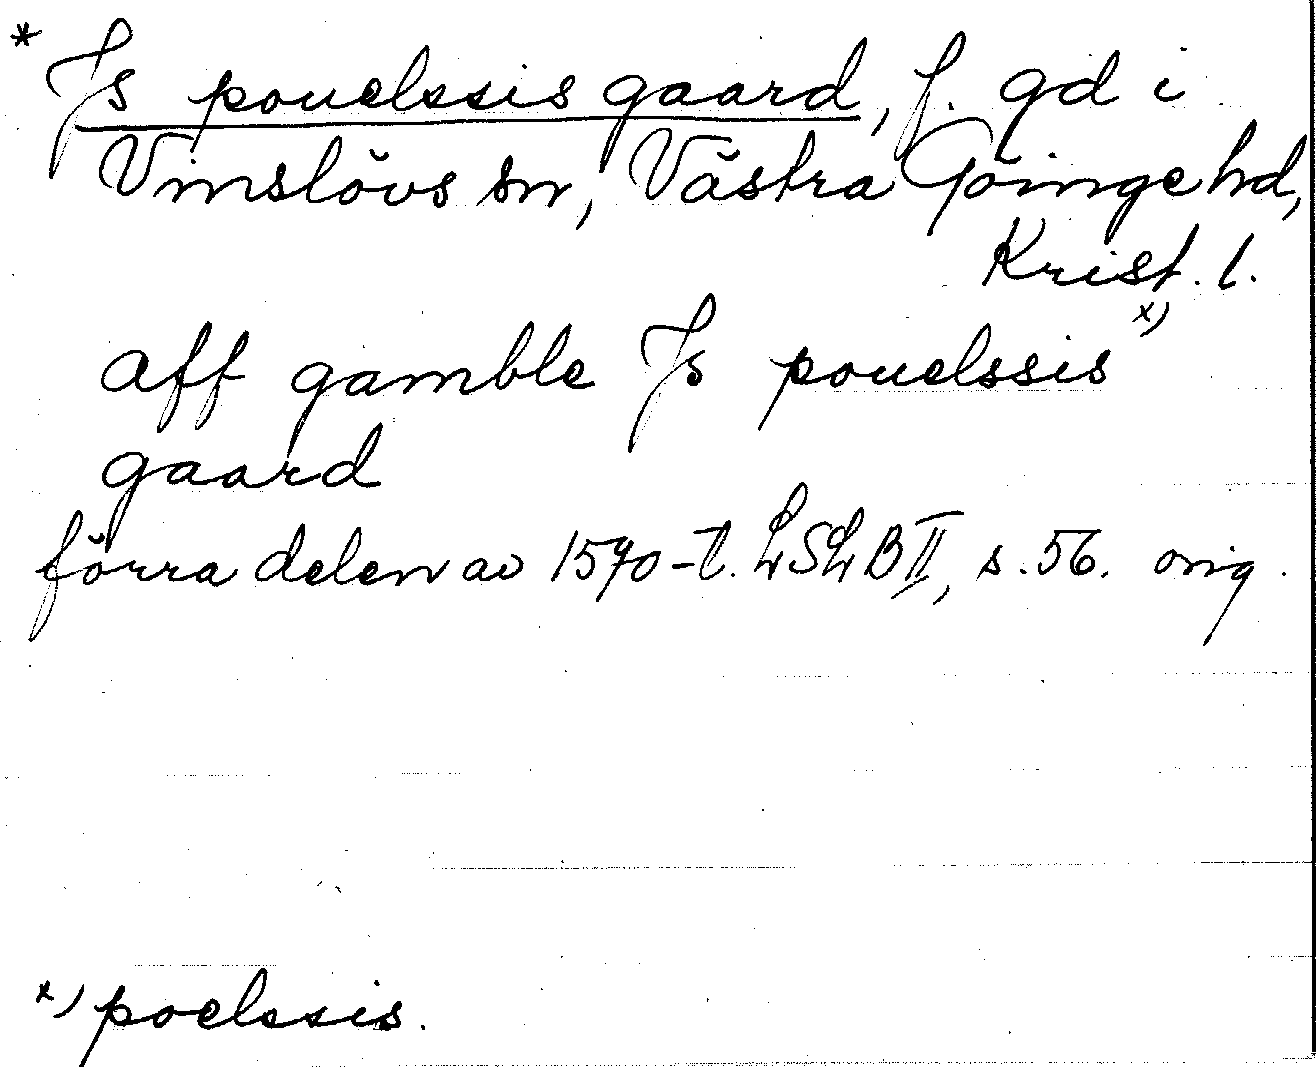 * Js pouelssis gaard, f. gd i
Vinslövs sn, Västra Göinge hd,
Krist. l.
aff gamble Js pouelssis x)
gaard
förra delen av 1570-t. LSLB II, s. 56. orig.
x) poelssis.